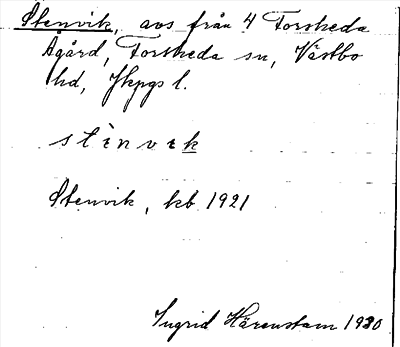 Stenvik, avs från 4 Forsheda
Ågård, Forsheda sn, Västbo
hd, Jkpgs l.
stènvik
Stenvik, kb 1921
Ingrid Härenstam 1930